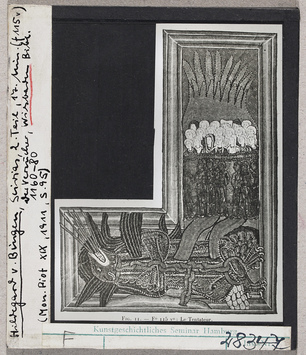 Hildegard v. Bingen, Scivias, 2. Teil, 17. Min. (f. 115v)
der Versucher, Wiesbaden Bibl.
1160–80
(Mon. Piot XIX, 1911, S. 95)
FIG. 11. — Fº 115 vº: Le Tentateur.
Kunstgeschichtliches Seminar Hamb
F
28347